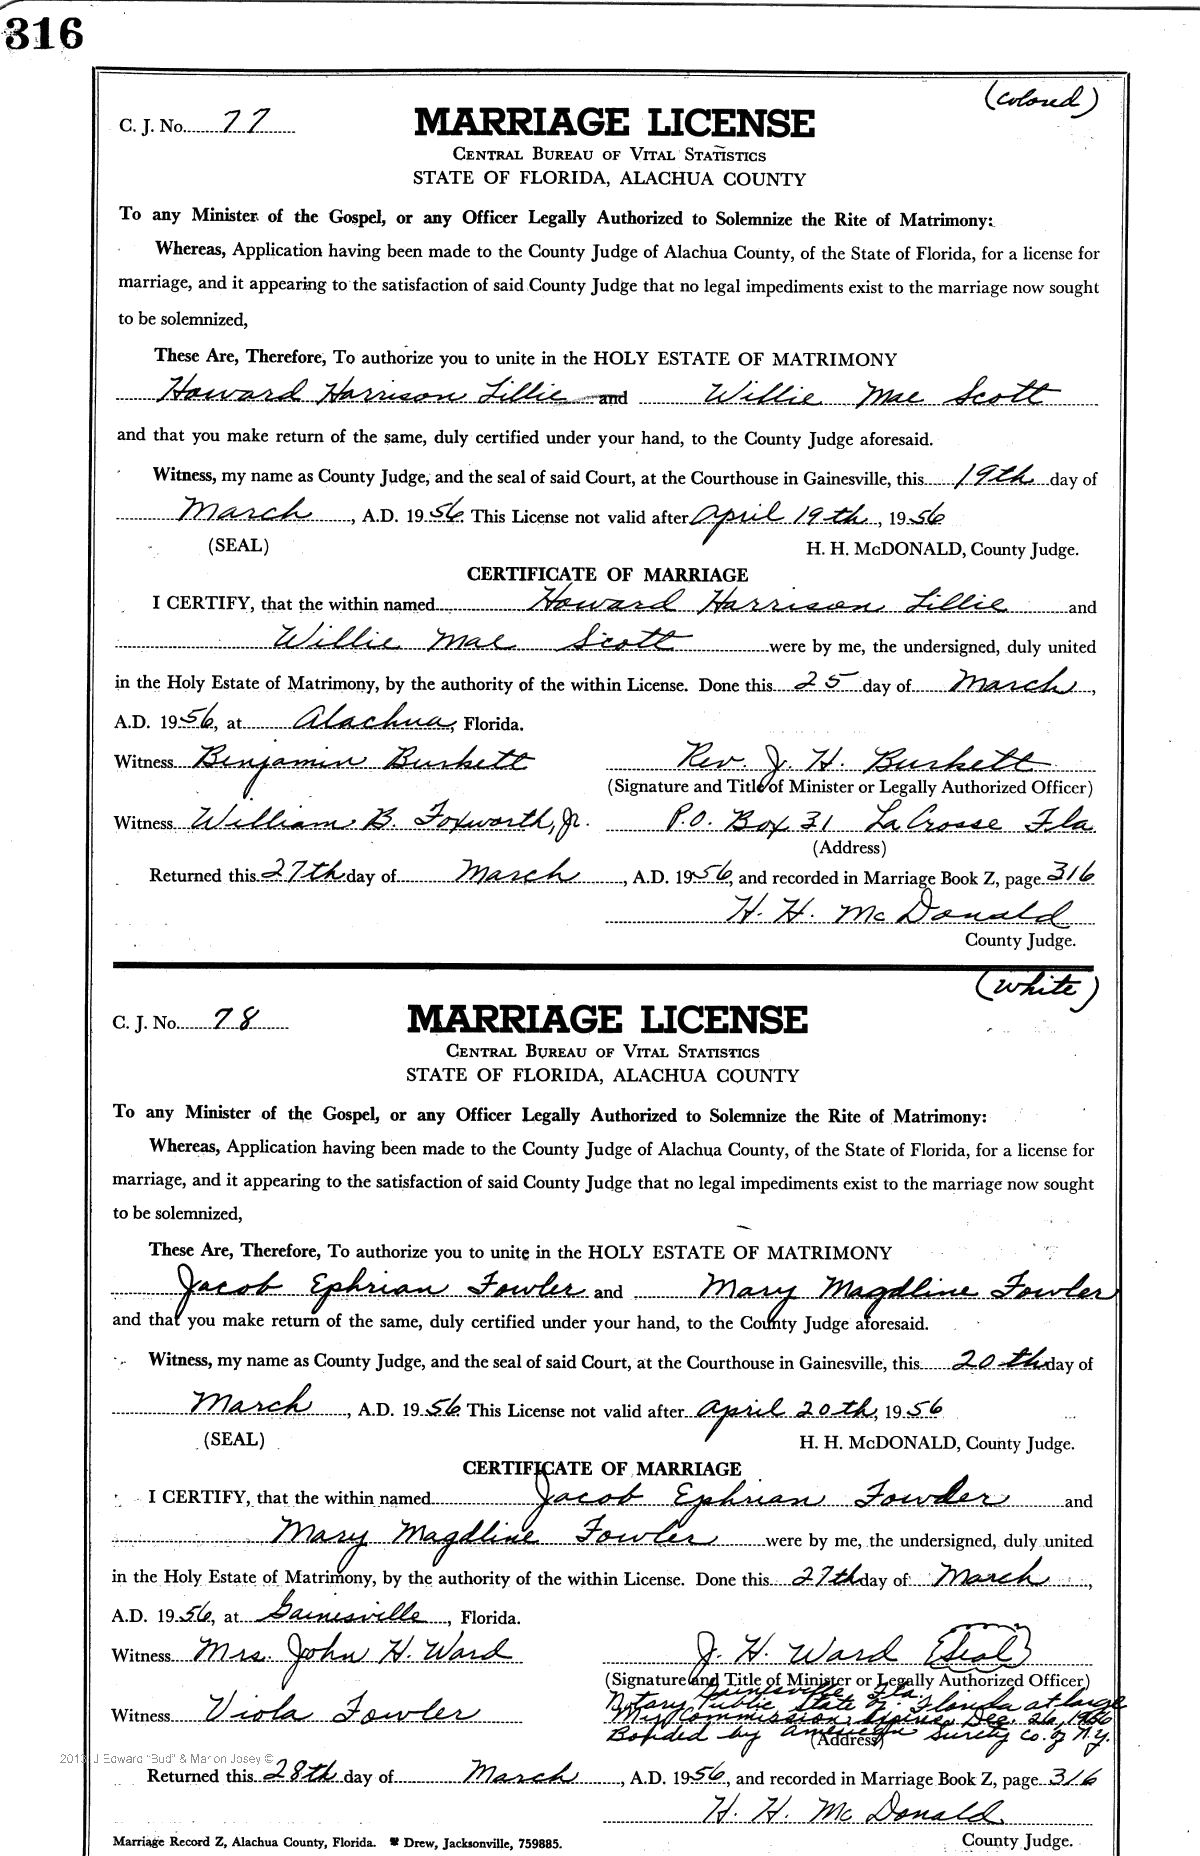 316
(colored)
C. J. No. 77
MARRIAGE LICENSE
CENTRAL BUREAU OF VITAL STATISTICS
STATE OF FLORIDA, ALACHUA COUNTY
To any Minister of the Gospel, or any Officer Legally Authorized to Solemnize the Rite of Matrimony:
Whereas, Application having been made to the County Judge of Alachua County, of the State of Florida, for a license for
marriage, and it appearing to the satisfaction of said County Judge that no legal impediments exist to the marriage now sought
to be solemnized,
These Are, Therefore, To authorize you to unite in the HOLY ESTATE OF MATRIMONY
Howard Harrison Lillie and Willie Mae Scott
and that you make return of the same, duly certified under your hand, to the County Judge aforesaid.
Witness, my name as County Judge, and the seal of said Court, at the Courthouse in Gainesville, this 19th day of
March, A.D. 1956. This License not valid after April 19th, 1956
(SEAL) H. H. McDONALD, County Judge.
CERTIFICATE OF MARRIAGE
I CERTIFY, that the within named Howard Harrison Lillie and
Willie Mae Scott were by me, the undersigned, duly united
in the Holy Estate of Matrimony, by the authority of the within License. Done this 25 day of March,
A.D. 1956, at Alachua, Florida.
Witness Benjamin Burkett Rev. J. H. Burkett
(Signature and Title of Minister or Legally Authorized Officer)
Witness William B. Foxworth, Jr. P.O. Box 31 LaCrosse Fla.
(Address)
Returned this 27th day of March, A.D. 1956, and recorded in Marriage Book Z, page 316
H. H. McDonald
County Judge.
(white)
C. J. No. 78
MARRIAGE LICENSE
CENTRAL BUREAU OF VITAL STATISTICS
STATE OF FLORIDA, ALACHUA COUNTY
To any Minister of the Gospel, or any Officer Legally Authorized to Solemnize the Rite of Matrimony:
Whereas, Application having been made to the County Judge of Alachua County, of the State of Florida, for a license for
marriage, and it appearing to the satisfaction of said County Judge that no legal impediments exist to the marriage now sought
to be solemnized,
These Are, Therefore, To authorize you to unite in the HOLY ESTATE OF MATRIMONY
Jacob Ephrian Fowler and Mary Magdline Fowler
and that you make return of the same, duly certified under your hand, to the County Judge aforesaid.
Witness, my name as County Judge, and the seal of said Court, at the Courthouse in Gainesville, this 20th day of
March, A.D. 1956. This License not valid after April 20th, 1956
(SEAL) H. H. McDONALD, County Judge.
CERTIFICATE OF MARRIAGE
I CERTIFY, that the within named Jacob Ephrian Fowler and
Mary Magdline Fowler were by me, the undersigned, duly united
in the Holy Estate of Matrimony, by the authority of the within License. Done this 27th day of March,
A.D. 1956, at Gainesville, Florida.
Witness Mrs. John H. Ward J. H. Ward (Seal)
(Signature and Title of Minister or Legally Authorized Officer)
Gainesville, Fla.
Notary Public, State of Florida at large
Witness Viola Fowler My Commission Expires Dec. 26, 1956
Bonded by American Surety Co. of N.Y.
(Address)
2013 J Edward "Bud" & Marion Josey ©
Returned this 28th day of March, A.D. 1956, and recorded in Marriage Book Z, page 316
H. H. McDonald
Marriage Record Z, Alachua County, Florida. Drew, Jacksonville, 759885. County Judge.